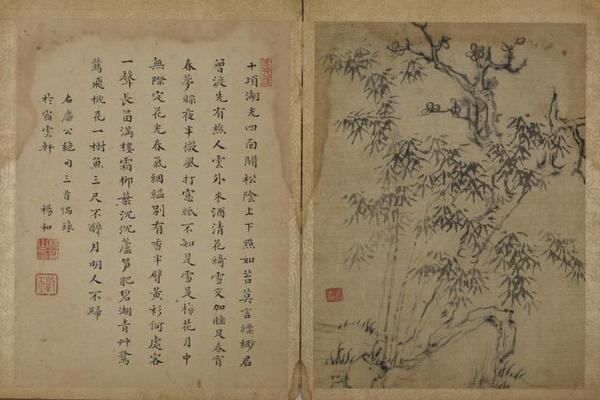 十頃湖光四面開松陰上下點如苔莫言縹緲君
曾渡先有樵人雲外來酒清花綺雪交加睡足春宵
春夢賒夜半微風打窓紙不知是雪是梅花月中
無際定花光春氣絪縕別有香半臂黃衫何處客
一聲長笛滿樓霜柳葉沉沉蘆笋肥碧湖青艸鷺
鷥飛桃花一樹魚三尺不醉月明人不歸
右廉公絕句三首偶錄
於宿雲軒 楊和